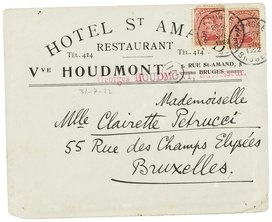 HOTEL ST AMA
RESTAURANT
TÉL. 414
TÉL. 414
Vve HOUDMONT, 8, RUE ST-AMAND,
BRUGES
HOUDMONT,
21-7-22
Mademoiselle
Mlle Clairette Petrucci
55 Rue des Champs Elysées
Bruxelles.